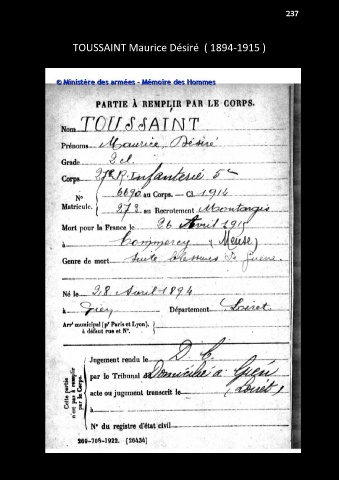 237
TOUSSAINT Maurice Désiré ( 1894-1915 )
© Ministère des armées - Mémoire des Hommes
PARTIE À REMPLIR PAR LE CORPS.
Nom TOUSSAINT
Prénoms Maurice, Désiré
Grade 2 cl.
Corps Infanterie
N° 6690 au Corps. — Cl. 1914
Matricule. 272 au Recrutement Montargis
Mort pour la France le 26 Avril 1915
à Commercy (Meuse)
Genre de mort Suite blessures de Guerre
Né le 28 Avril 1894
à Gien Département Loiret
Arr^t municipal (p^r Paris et Lyon),
à défaut rue et N°.
Jugement rendu le D. C.
par le Tribunal de Domicilié à Gien
acte ou jugement transcrit le (Loiret)
à
N° du registre d'état civil
Cette partie
n'est pas à remplir
par le Corps.
269-708-1922. [26434]